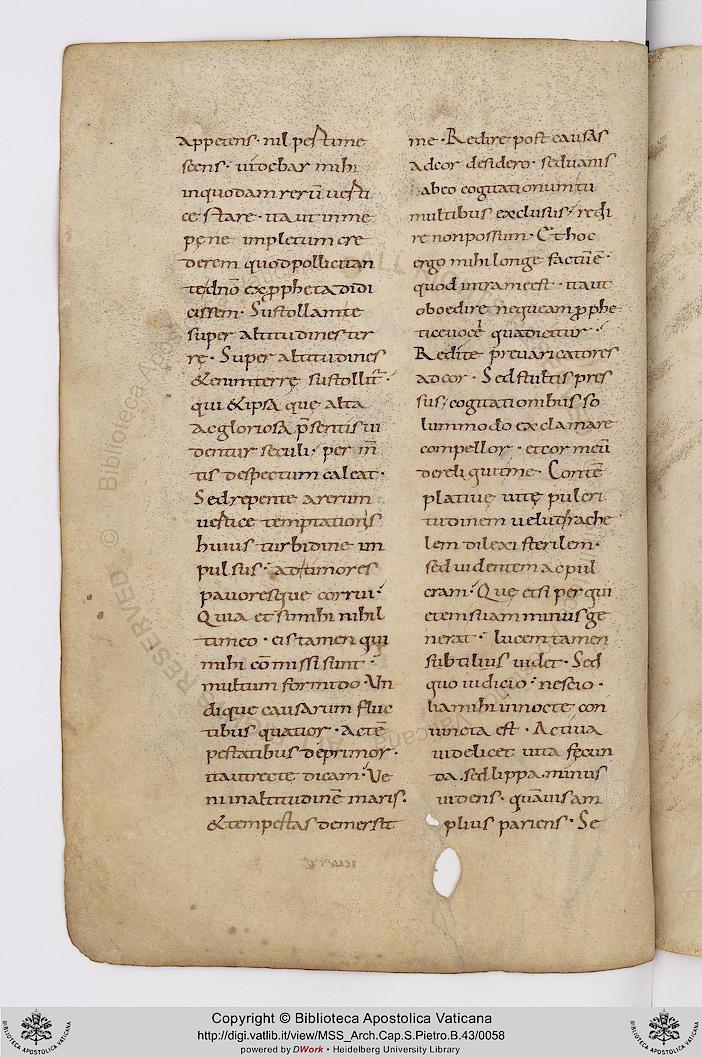 appetens · nil pertime
scens · videbar mihi
inquodam rerū verti
ce stare · ita ut in me
pęne impletum cre
derem quod pollicitan
te dn̄o ex ꝓpheta didi
cissem · Sustollam te
super altitudines ter
rę · Super altitudines
& enim terrę sustollit᷑ ·
qui & ipsa quę alta
ac gloriosa p̄sentis vi
dentur seculi · per m̄
tis despectum calcat ·
Sed repente a rerum
vertice temptationis
huius turbidine im
pulsus · ad timores
pavoresque corrui ·
Quia etsi mihi nihil
timeo · eis tamen qui
mihi cōmissi sunt ·
multum formido · Un
dique causarum fluc
tibus quatior · ac tē
pestatibus deprimor ·
ita ut recte dicam · Ve
ni in altitudinē maris ·
& tempestas demersit
me · Redire post causas
ad cor desidero · sed vanis
ab eo cogitationum tu
multibus exclusus · redi
re non possum · Et hoc
ergo mihi longe factū ē ·
quod intra me est · ita ut
oboedire nequeam ꝓphe
ticę voci qua dicitur ·
Redite prevaricatores
ad cor · Sed stultis pres
sus cogitationibus so
lummodo exclamare
compellor · et cor meū
dereliquit me · Contē
plativę vitę pulcri
tudinem velut rache
lem dilexi sterilem ·
sed videntem ac pul
cram · Quę etsi per qui
etem suam minus ge
nerat · lucem tamen
subtilius videt · Sed
quo iudicio · nescio ·
lia mihi in nocte con
iuncta est · Activa
videlicet vita fęcun
da · sed lippa · minus
videns · quāvis am
plius pariens · Se
Copyright © Biblioteca Apostolica Vaticana
http://digi.vatlib.it/view/MSS_Arch.Cap.S.Pietro.B.43/0058
powered by DWork • Heidelberg University Library